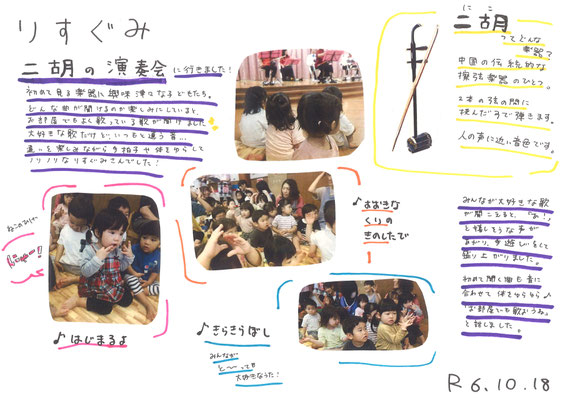 りすぐみ
二胡の演奏会に行きました！
初めて見る楽器に興味津々な子どもたち。
どんな曲が聞けるのか楽しみにしていると、
お部屋でもよく歌っている歌が聞けました
大好きな歌だけど、いつもと違う音…
違いを楽しみながら手拍子や体をゆらして
ノリノリなりすぐみさんでした！
にこ
二胡
ってどんな
楽器？
中国の伝統的な
擦弦楽器のひとつ。
2本の弦の間に
挟んだ弓で弾きます。
人の声に近い音色です。
♪おおきな
くりの
きのしたで
ねこのひげー
♪はじまるよ
♪きらきらぼし
みんなが
と〜っても
大好きなうた！
みんなが大好きな歌
が聞こえると、「あ！」
と嬉しそうな声が
あがり、手遊びをして
盛り上がりました。
初めて聞く曲も音に
合わせて体をゆらゆら♪
「お部屋でも歌おうね」
と話しました。
R6.10.18